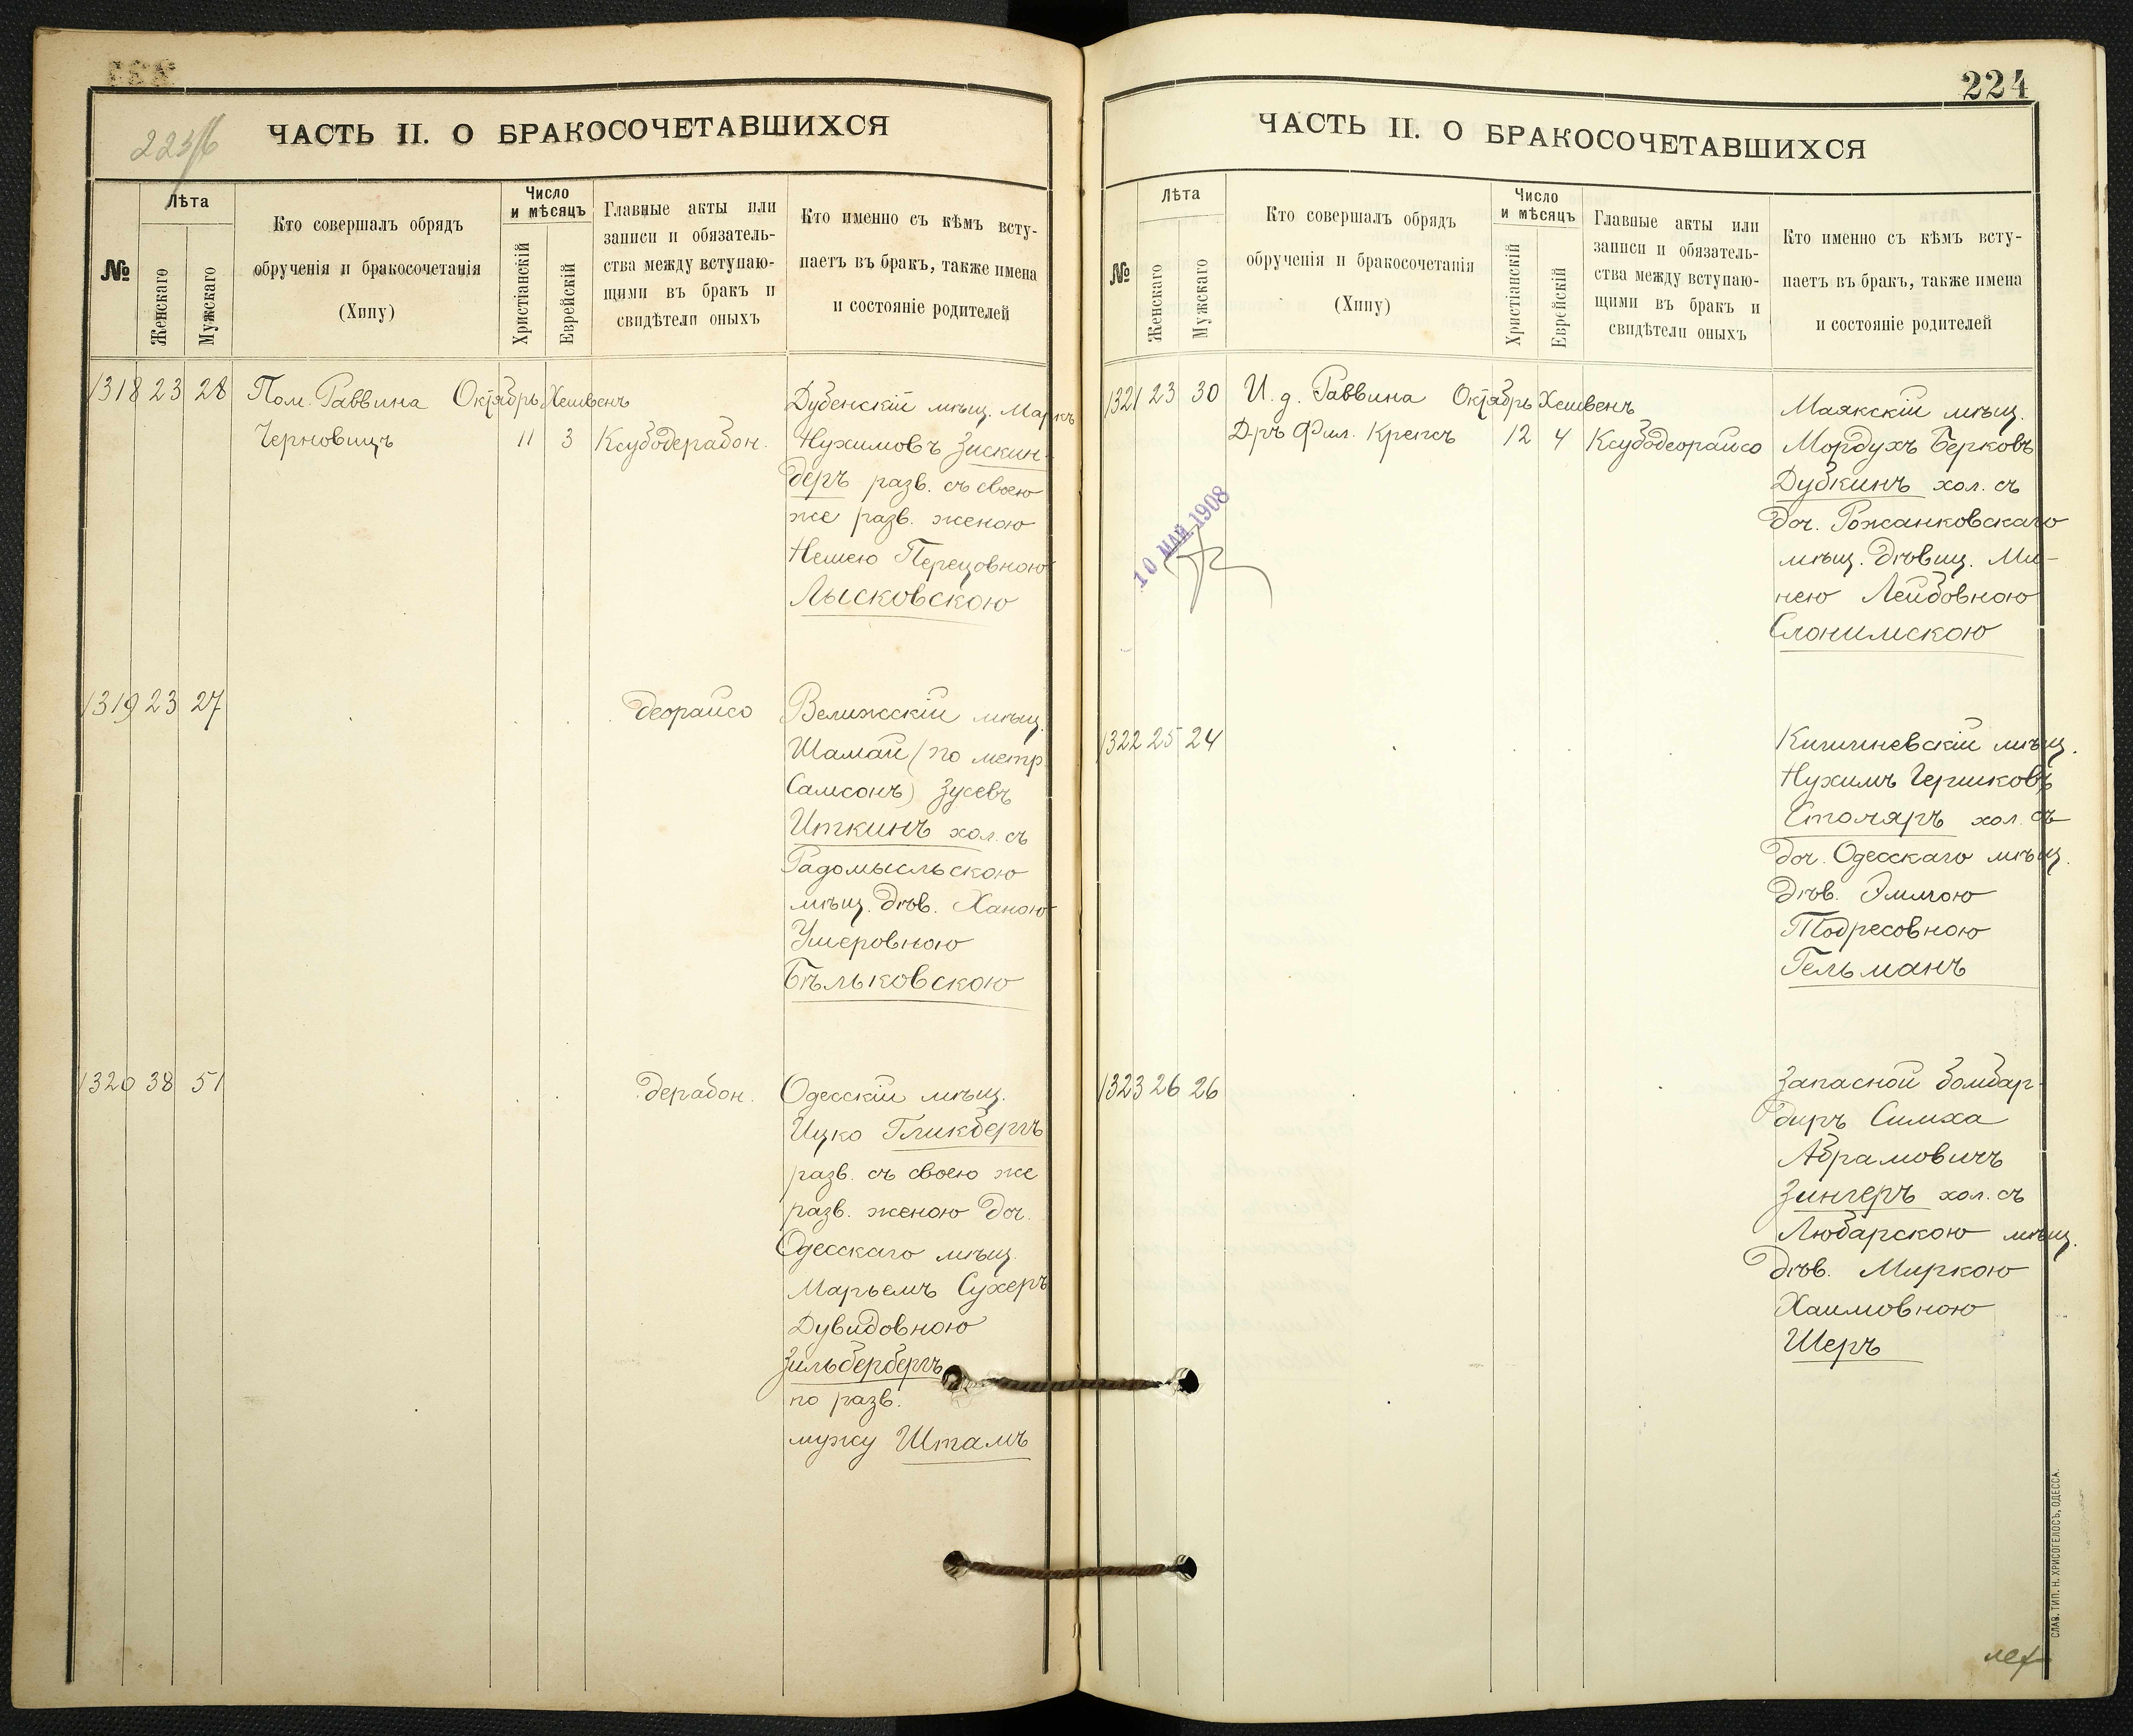 223/б
ЧАСТЬ II. О БРАКОСОЧЕТАВШИХСЯ
№
Лѣта
Женскаго
Мужскаго
Кто совершалъ обрядъ
обрученія и бракосочетанія
(Хипу)
Число
и мѣсяцъ
Христіанскій
Еврейскій
Главные акты или
записи и обязатель-
ства между вступаю-
щими въ бракъ и
свидѣтели оныхъ
Кто именно съ кѣмъ всту-
паетъ въ бракъ, также имена
и состояніе родителей
1318 23 28 Пом. Раввина Октябрь Хешвенъ
Черновицъ 11 3 Ксубодерабон.
Дубенскій мѣщ. Маркъ
Нухимовъ Зискин-
деръ разв. съ своею
же разв. женою
Нешею Перецовною
Лысковскою
1319 23 27 деорайсо
Велижскій мѣщ.
Шамай (по метр.
Самсонъ) Зусевъ
Иткинъ хол. съ
Радомысльскою
мѣщ. дѣв. Ханою
Умеровною
Бѣльковскою
1320 38 51 дерабон.
Одесскій мѣщ.
Ицко Гликбергъ
разв. съ своею же
разв. женою доч.
Одесскаго мѣщ.
Марьемъ Сухеръ
Дувидовною
Зильбербергъ
по разв.
мужу Штамъ
224
ЧАСТЬ II. О БРАКОСОЧЕТАВШИХСЯ
№
Лѣта
Женскаго
Мужскаго
Кто совершалъ обрядъ
обрученія и бракосочетанія
(Хипу)
Число
и мѣсяцъ
Христіанскій
Еврейскій
Главные акты или
записи и обязатель-
ства между вступаю-
щими въ бракъ и
свидѣтели оныхъ
Кто именно съ кѣмъ всту-
паетъ въ бракъ, также имена
и состояніе родителей
1321 23 30 И. д. Раввина Октябрь Хешвенъ
Д-ръ Фил. Крепсъ 12 4 Ксубодеорайсо
10 МАЙ 1908
Маякскій мѣщ.
Мордухъ Берковъ
Дубкинъ хол. съ
доч. Рожанковскаго
мѣщ. дѣвиц. Ми-
нею Лейбовною
Слонимскою
1322 25 24
Кишиневскій мѣщ.
Нухимъ Гершковъ
Столяръ хол. съ
доч. Одесскаго мѣщ.
дѣв. Эммою
Тодресовною
Гельманъ
1323 26 26
Запасной бомбар-
диръ Симха
Абрамовичъ
Зингеръ хол. съ
Любарскою мѣщ.
дѣв. Миркою
Хаимовною
Шеръ
СЛАВ. ТИП. Н. ХРИСОГЕЛОСЪ, ОДЕССА.